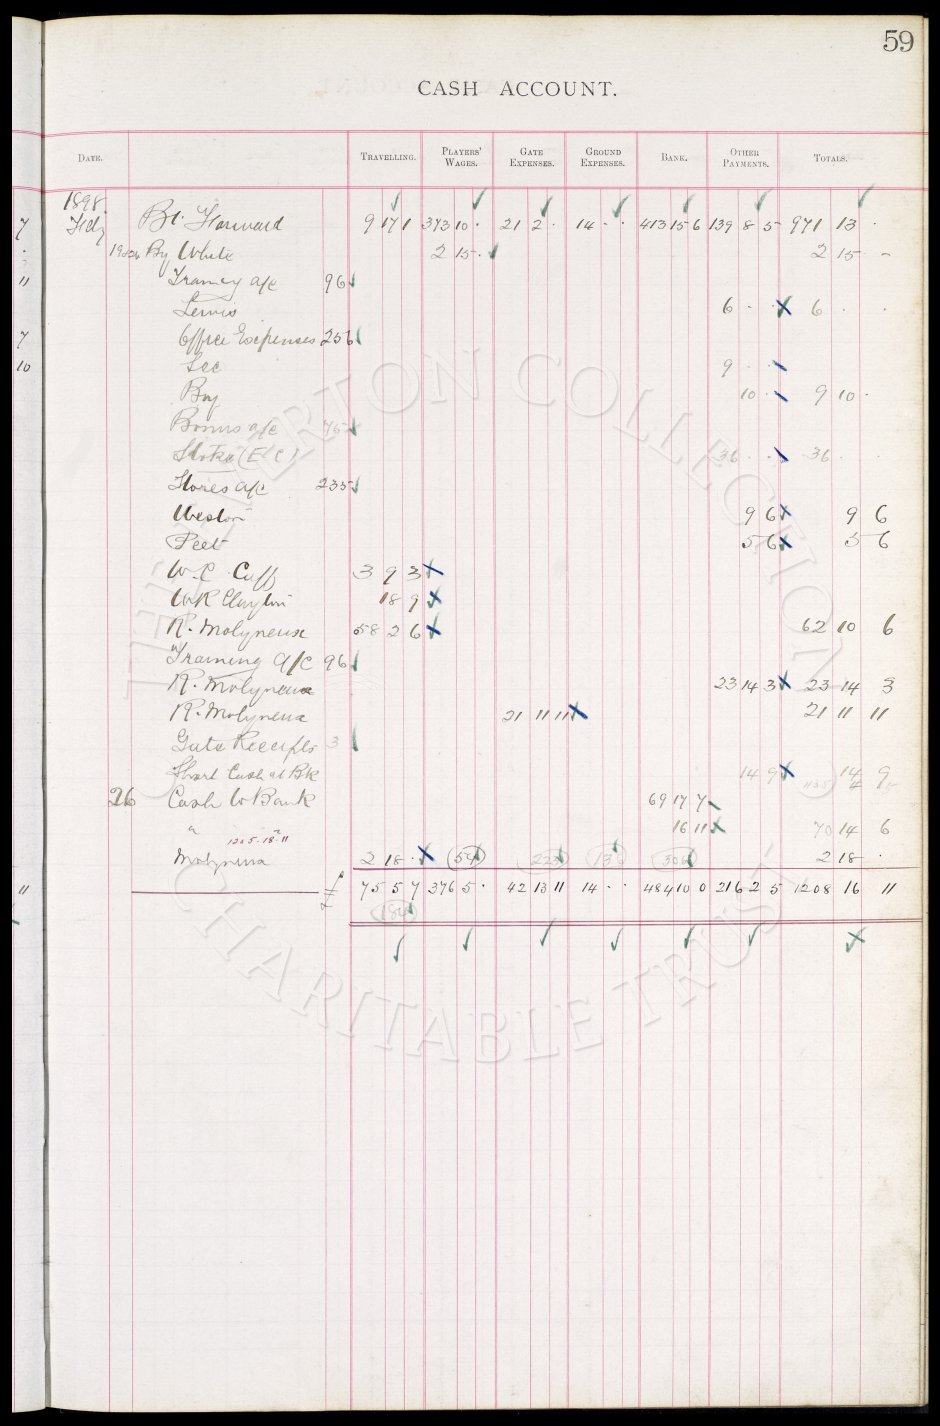 59
CASH ACCOUNT.
DATE. TRAVELLING. PLAYERS' WAGES. GATE EXPENSES. GROUND EXPENSES. BANK. OTHER PAYMENTS. TOTALS.
1898
Feby Bt. Forward 9 17 1 373 10 · 21 2 · 14 · · 413 15 6 139 8 5 971 13 ·
7
By White 2 15 · 2 15 -
11 Training a/c 96
Lewis 6 · · 6 · ·
7 Office Expenses 256
10 Sec 9 · ·
Boy 10 · 9 10 ·
Bonus a/c 75
Stoke (E C) 36 · · 36 · ·
Stores a/c 235
Weston 9 6 9 6
Peet 5 6 5 6
W.C. Cuff 3 9 3
W R Clayton 18 9
R. Molyneux 58 2 6 62 10 6
Training a/c 96
R. Molyneux 23 14 3 23 14 3
R. Molyneux 21 11 11 21 11 11
Gate Receipts 3
Short Cash at Bk 14 9 14 9
26 Cash to Bank 69 17 7
" " 16 11 70 14 6
1205-18-11
Molyneux 2 18 · 54 223 13 306 2 18 ·
11 £ 75 5 7 376 5 · 42 13 11 14 · · 484 10 0 216 2 5 1208 16 11
184
THE EVERTON COLLECTION
CHARITABLE TRUST